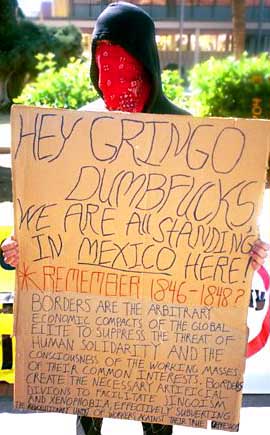 HEY GRINGO
DUMBFUCKS
WE ARE All STANDING
IN MEXICO HERE!
*REMEMBER 1846-1848?
BORDERS ARE THE ARBITRARY
ECONOMIC COMPACTS OF THE GLOBAL
ELITE TO SUPPRESS THE THREAT OF
HUMAN SOLIDARITY AND THE
CONSCIOUSNESS OF THE WORKING MASSES
OF THEIR COMMON INTERESTS. BORDERS
CREATE THE NECESSARY ARTIFICIAL
DIVISIONS TO FACILITATE JINGOISM
AND XENOPHOBIA, EFFECTIVELY SUBVERTING
THE REVOLUTIONARY UNITY OF WORKERS AGAINST THEIR TRUE OPPRESSORS